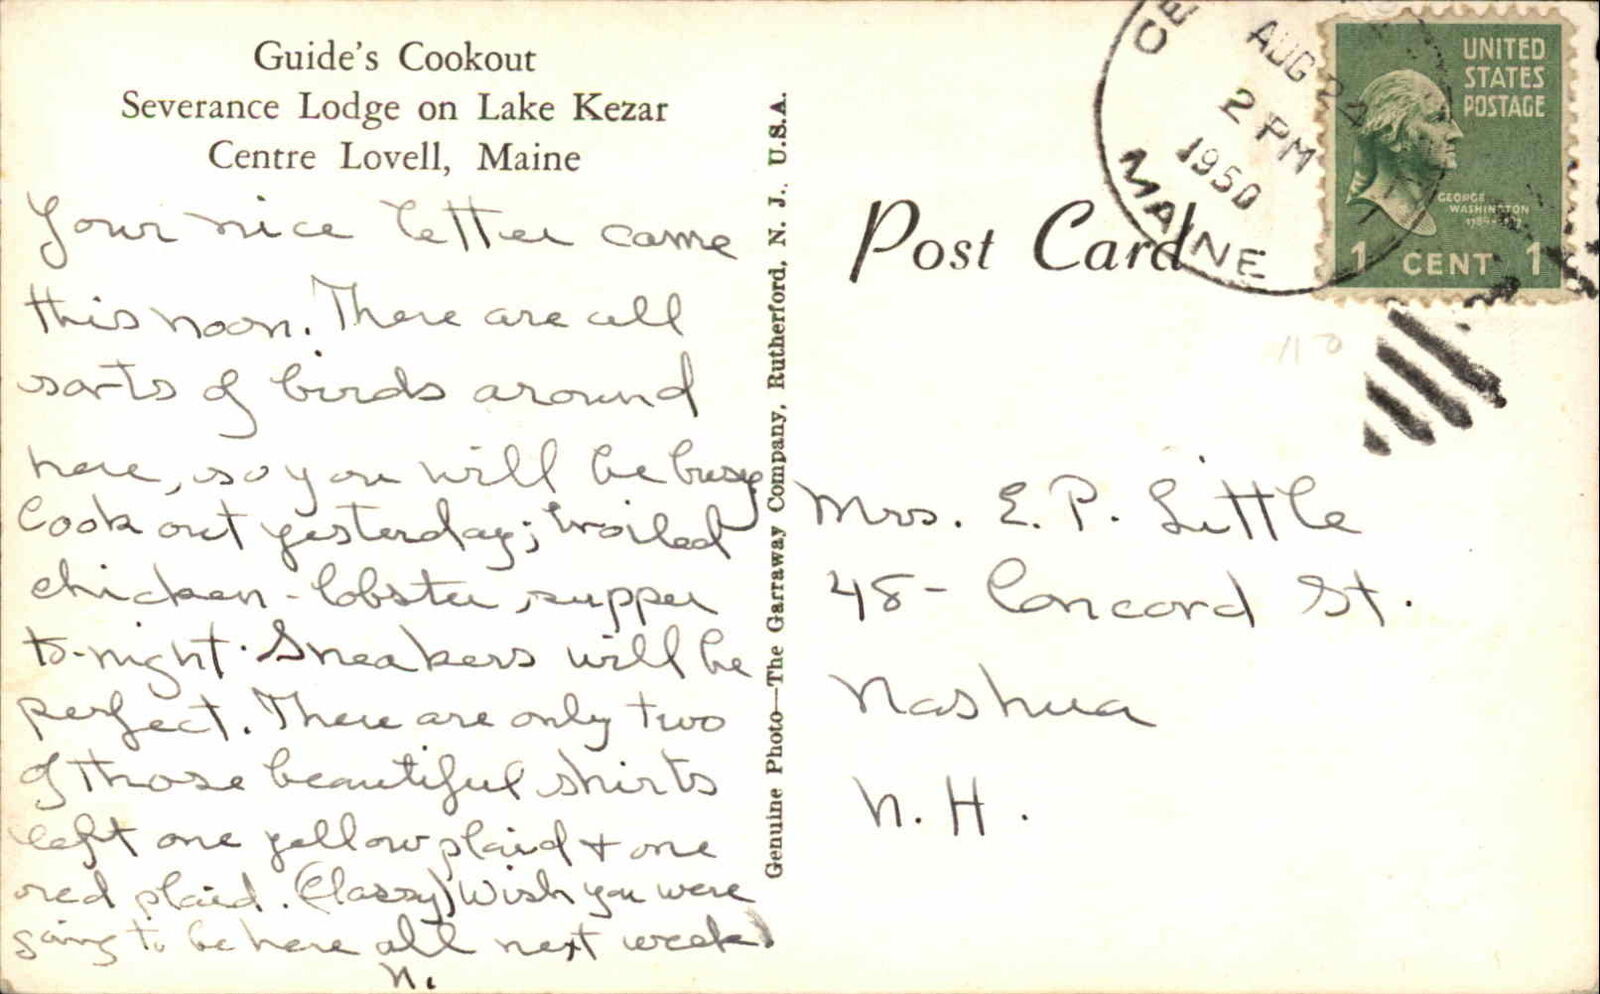 Guide's Cookout
Severance Lodge on Lake Kezar
Centre Lovell, Maine
Your nice letter came
this noon. There are all
sorts of birds around
here, so you will be busy
Cook out yesterday; broiled
chicken - lobster supper
to-night. Sneakers will be
perfect. There are only two
of those beautiful shirts
left one yellow plaid + one
red plaid. (Classy) Wish you were
going to be here all next week.
N.
Genuine Photo—The Garraway Company, Rutherford, N. J., U.S.A.
Post Card
CE
AUG 24
2 PM
1950
MAINE
UNITED
STATES
POSTAGE
GEORGE
WASHINGTON
1 CENT 1
110
Mrs. E. P. Little
48 - Concord St.
Nashua
N. H.